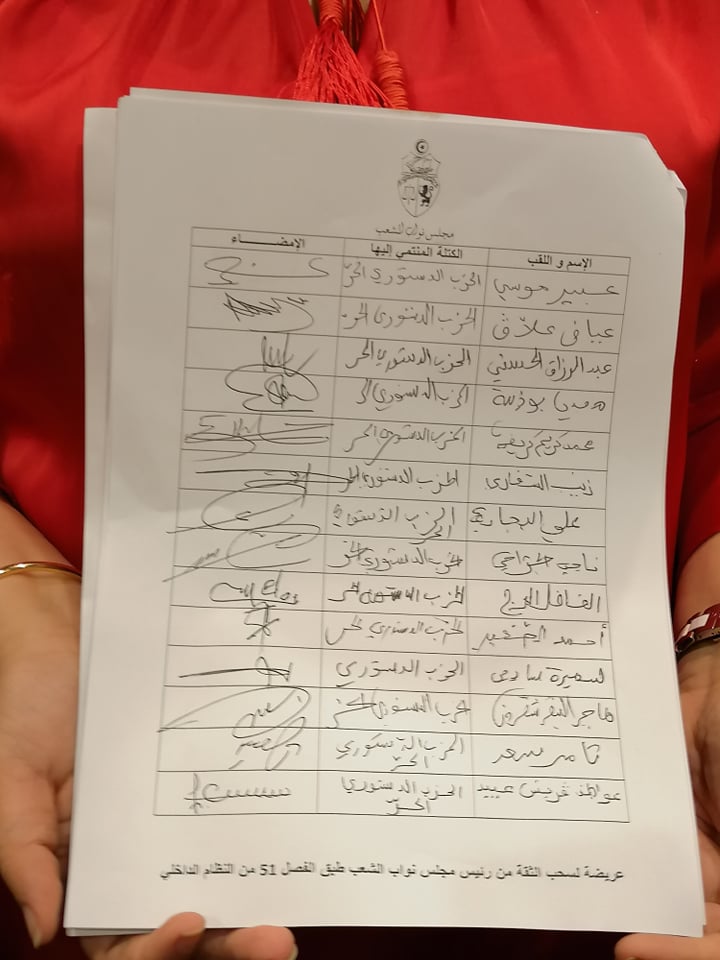 مجلس نواب الشعب
الإسم و اللقب الكتلة المنتمي إليها الإمضــــــاء
عبير موسي الحزب الدستوري الحرّ
عبافي علاق الحزب الدستوري الحر
عبد الرزاق الحسني الحزب الدستوري الحر
بوذينة الحزب الدستوري الحر
محمد كريم كريفة الحزب الدستوري الحر
زينب السفاري الحزب الدستوري الحر
علي البجاوي الحزب الدستوري
الحر
ناجي الجراحي الحزب الدستوري الحر
الحزب الدستوري الحر
أحمد الصغير الحزب الدستوري الحر
سميرة سايحي الحزب الدستوري
هاجر النيفر شقرون حزب الدستوري الحر
ثامر سعد الحزب الدستوري
الحرّ
عواطف قريش عبيد الحزب الدستوري
الحرّ
عريضة لسحب الثقة من رئيس مجلس نواب الشعب طبق الفصل 51 من النظام الداخلي